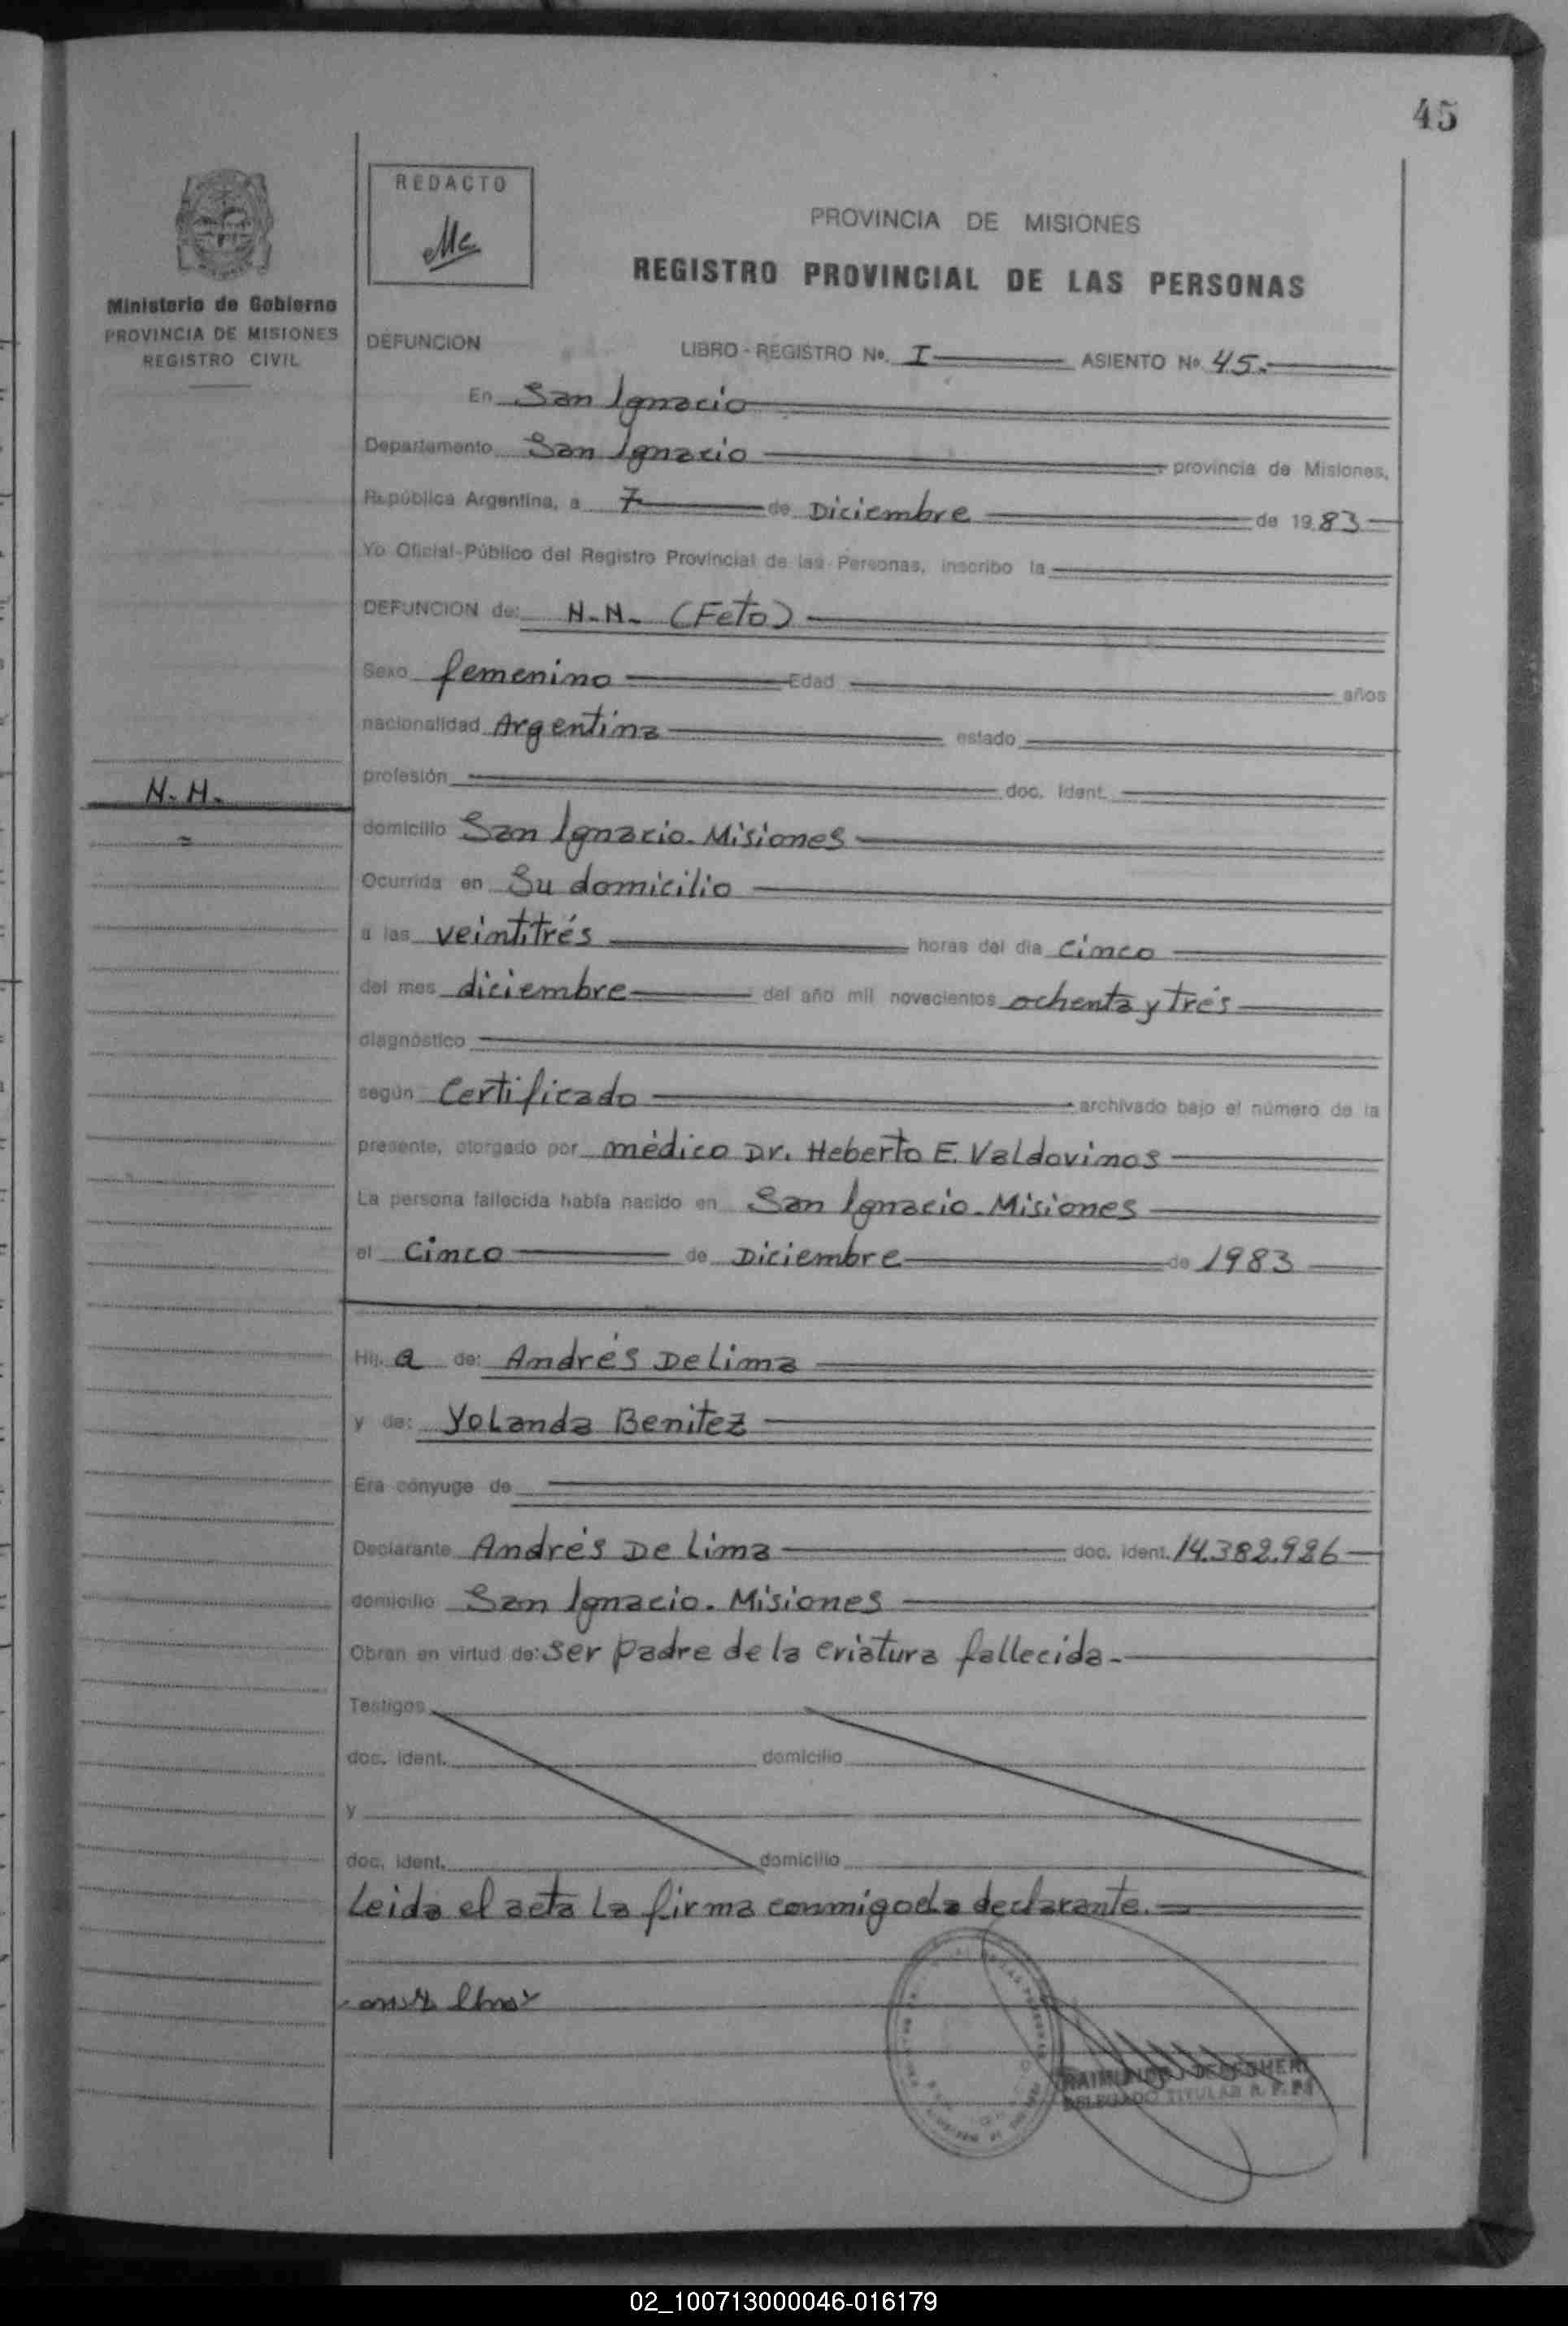 45
REDACTO
PROVINCIA DE MISIONES
REGISTRO PROVINCIAL DE LAS PERSONAS
Ministerio de Gobierno
PROVINCIA DE MISIONES
REGISTRO CIVIL
DEFUNCION LIBRO - REGISTRO Nº. I ASIENTO Nº 45.-
En San Ignacio
Departamento San Ignacio provincia de Misiones,
República Argentina, a 7 de Diciembre de 1983
Yo Oficial-Público del Registro Provincial de las Personas, inscribo la
DEFUNCION de: N.N. (Feto)
Sexo femenino Edad años
nacionalidad Argentina estado
profesión doc. ident.
N.N.
domicilio San Ignacio. Misiones
Ocurrida en Su domicilio
a las veintitrés horas del día cinco
del mes diciembre del año mil novecientos ochenta y trés
diagnóstico
según Certificado archivado bajo el número de la
presente, otorgado por médico Dr. Heberto E. Valdovinos
La persona fallecida había nacido en San Ignacio. Misiones
el Cinco de Diciembre de 1983
Hij a de: Andrés De Lima
y de: Yolanda Benitez
Era cónyuge de
Declarante Andrés De Lima doc. ident. 14.382.926
domicilio San Ignacio. Misiones
Obran en virtud de: ser padre de la criatura fallecida.-
Testigos
doc. ident. domicilio
y
doc. ident. domicilio
Leida el acta La firma conmigo el declarante.
DELEGADO TITULAR R. P. P.
02_100713000046-016179